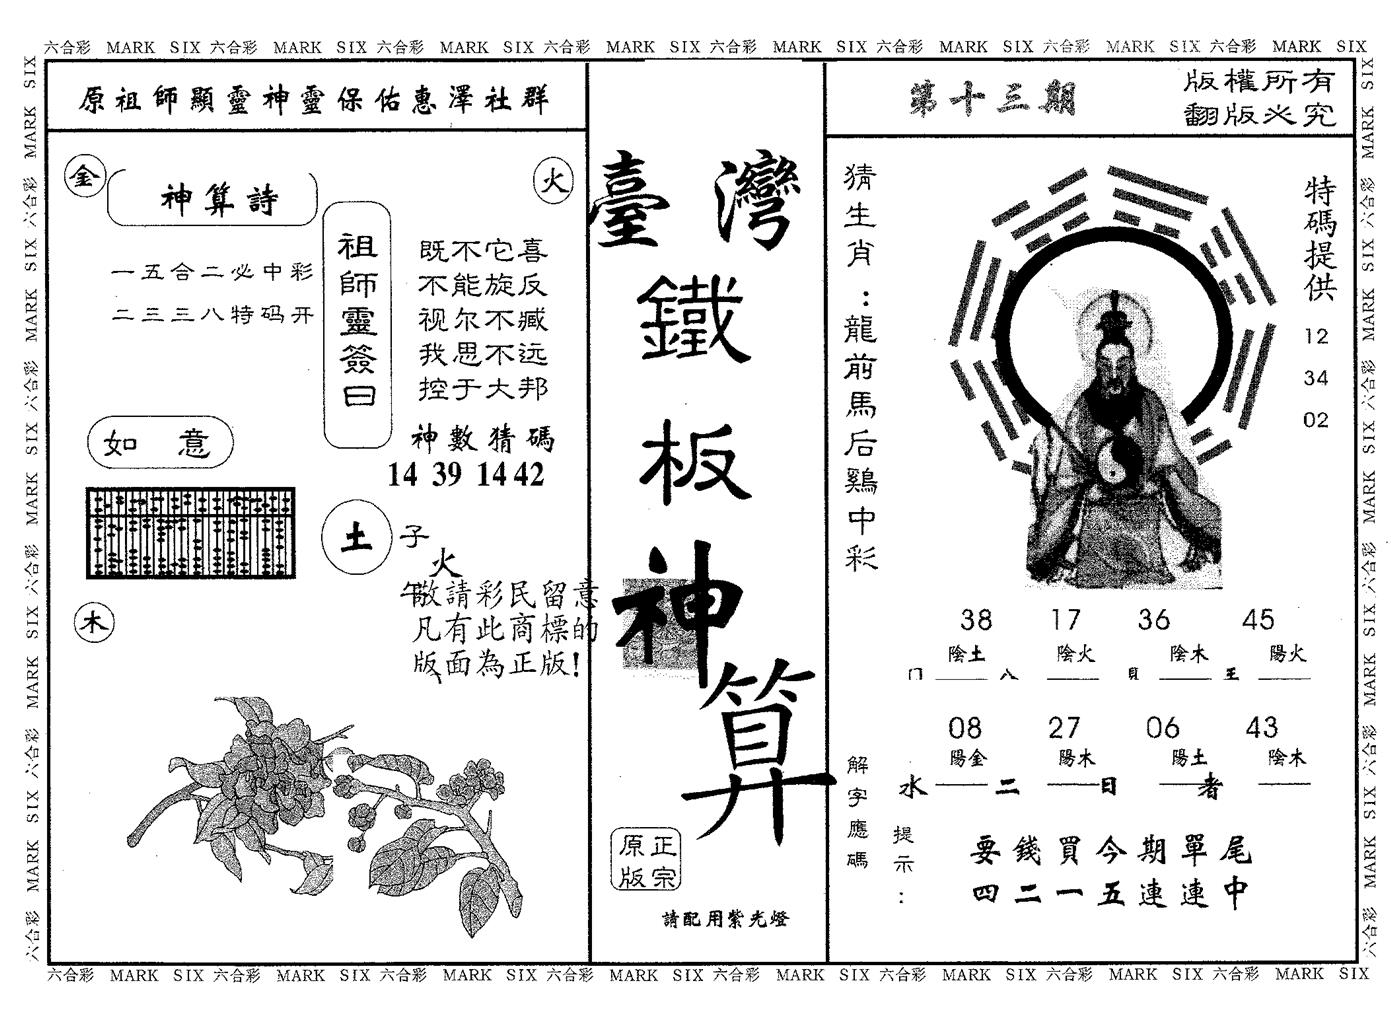 六合彩 MARK SIX 六合彩 MARK SIX 六合彩 MARK SIX 六合彩 MARK SIX 六合彩 MARK SIX 六合彩 MARK SIX 六合彩 MARK SIX 六合彩 MARK SIX
原祖師顯靈神靈保佑惠澤社群
金
神算詩
火
一五合二必中彩
二三三八特码开
祖師靈簽曰
既不它喜
不能旋反
视尔不臧
我思不远
控于大邦
神數猜碼
14 39 14 42
如意
土
子
火
午
敬請彩民留意
凡有此商標的
版面為正版!
木
臺灣
鐵
板
神
算
正宗
原版
請配用紫光燈
第十三期
版權所有
翻版必究
猜生肖:龍前馬后鷄中彩
特碼提供
12
34
02
38 17 36 45
陰土 陰火 陰木 陽火
08 27 06 43
陽金 陽木 陽土 陰木
水 二 日 者
解字應碼
提示:
要錢買今期單尾
四二一五連連中
六合彩 MARK SIX 六合彩 MARK SIX 六合彩 MARK SIX 六合彩 MARK SIX 六合彩 MARK SIX 六合彩 MARK SIX 六合彩 MARK SIX 六合彩 MARK SIX